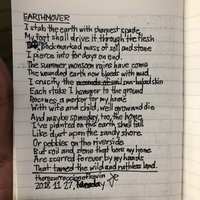 EARTHMOVER
I stab the earth with sharpest spade
My foot shall drive it through the flesh
Pockmarked mass of soil and stone
I pierce into for days on end.
The summer monsoon rains have come
The wounded earth now bleeds with mud,
I crucify the
Each stake I hammer to the ground
Becomes a marker for my home
With wife and child, well grown and
And maybe someday, too, the home
I've planted on this earth shall fall
Like dust upon the sandy shore
Or pebbles on the riverside
But soil and stone that bore my home
Are scarred forever by my hands
That tamed the wild and ruthless land.
2018. 11. 27, Tuesday